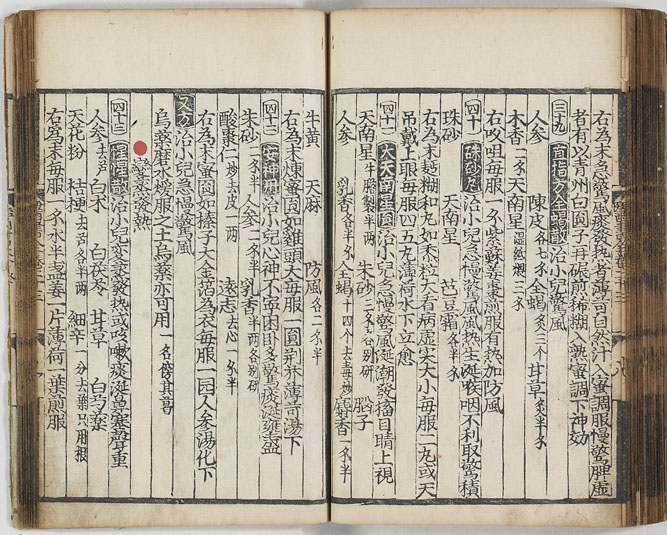 右為末急驚風痰發熱者薄荷自然汁入蜜調服慢驚脾虛
者有以青州白圓子再碾煎稀糊入熟蜜調下神効
三十九 直指方全蝎散 治小兒驚風
人參 陳皮各七分 全蝎炙三个 甘草炙半分
木香一分 天南星濕紙煨三分
右㕮咀每服一分紫蘇姜棗煎服有热加防風
四十 硃砂丸 治小兒急慢驚風風热生涎喉咽不利取驚積
硃砂 天南星 巴豆霜各半分
右為末麪糊和丸如黍粒大看病虛实大小每服二丸或天
吊戴上眼每服四五丸薄荷水下立愈
四十一 大天南星圓 治小兒急慢驚風涎潮發搐目睛上視
天南星牛膽製半兩 朱砂 別研
人參 乳香各半分 全蝎十四个去毒炒 麝香一分半
牛黃 天麻 防風各二分半
右為末煉蜜圓如雞頭大每服一圓荆芥薄荷湯下
四十二 安神丸 治小兒心神不寧困卧多驚痰涎壅盛
朱砂一分半 人參二分半 乳香半兩各別研
酸棗仁炒去皮一兩 遠志去心一分半
右為末蜜圓如榛子大金箔為衣每服一圓人參湯化下
又方 治小兒急慢驚風
烏藥磨水煖服之土烏藥亦可用一名傍其菖
變蒸發熱
四十三 惺惺散 治小兒變蒸發热或咳嗽痰涎鼻塞聲重
人參去芦 白术 白茯苓 甘草 白芍藥
天花粉 桔梗去芦各半兩 細辛一分去葉只用根
右為末每服一分水半盞姜一片薄荷一葉煎服